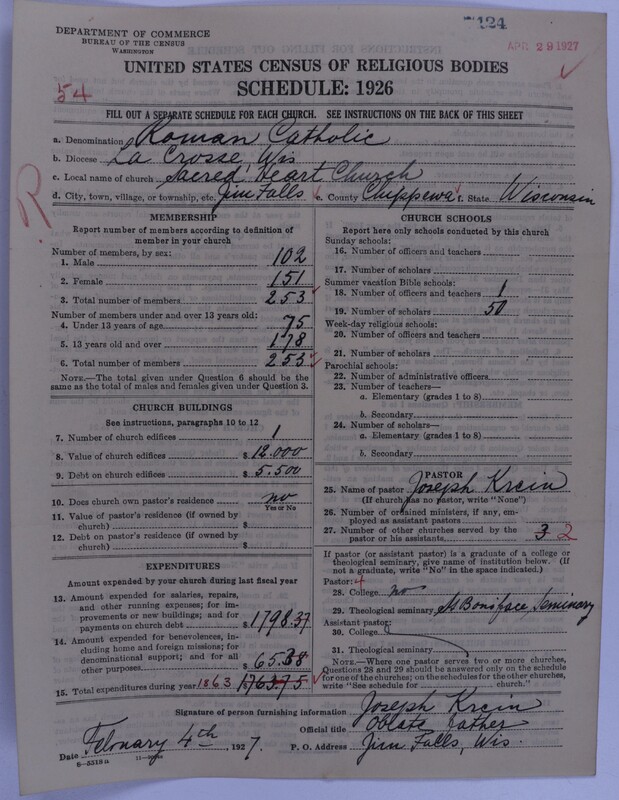 124
DEPARTMENT OF COMMERCE
BUREAU OF THE CENSUS
WASHINGTON
APR 29 1927
UNITED STATES CENSUS OF RELIGIOUS BODIES
SCHEDULE: 1926
54
FILL OUT A SEPARATE SCHEDULE FOR EACH CHURCH. SEE INSTRUCTIONS ON THE BACK OF THIS SHEET
a. Denomination Roman Catholic
b. Diocese La Crosse, Wis
c. Local name of church Sacred Heart Church
d. City, town, village, or township, etc. Jim Falls e. County Chippewa f. State Wisconsin
R.
MEMBERSHIP
Report number of members according to definition of
member in your church
Number of members, by sex:
1. Male 102
2. Female 151
3. Total number of members 253
Number of members under and over 13 years old:
4. Under 13 years of age 75
5. 13 years old and over 178
6. Total number of members 253
NOTE.—The total given under Question 6 should be
the same as the total of males and females given under Question 3.
CHURCH BUILDINGS
See instructions, paragraphs 10 to 12
7. Number of church edifices 1
8. Value of church edifices $ 12.000
9. Debt on church edifices $ 5.500
10. Does church own pastor's residence no
Yes or No
11. Value of pastor's residence (if owned by
church) $
12. Debt on pastor's residence (if owned by
church) $
EXPENDITURES
Amount expended by your church during last fiscal year
13. Amount expended for salaries, repairs,
and other running expenses; for im-
provements or new buildings; and for
payments on church debt $ 1798.37
14. Amount expended for benevolences,
including home and foreign missions; for
denominational support; and for all
other purposes $ 65.38
15. Total expenditures during year 1863 1763.75
CHURCH SCHOOLS
Report here only schools conducted by this church
Sunday schools:
16. Number of officers and teachers
17. Number of scholars
Summer vacation Bible schools:
18. Number of officers and teachers 1
19. Number of scholars 50
Week-day religious schools:
20. Number of officers and teachers
21. Number of scholars
Parochial schools:
22. Number of administrative officers
23. Number of teachers—
a. Elementary (grades 1 to 8)
b. Secondary
24. Number of scholars—
a. Elementary (grades 1 to 8)
b. Secondary
PASTOR
25. Name of pastor Joseph Krein
(If church has no pastor, write "None")
26. Number of ordained ministers, if any, em-
ployed as assistant pastors
27. Number of other churches served by the
pastor or his assistants 3 2
If pastor (or assistant pastor) is a graduate of a college or
theological seminary, give name of institution below. (If
not a graduate, write "No" in the space indicated.)
Pastor: 4
28. College no
29. Theological seminary St Boniface, Seminary
Assistant pastor:
30. College
31. Theological seminary
NOTE.—Where one pastor serves two or more churches,
Questions 28 and 29 should be answered only on the schedule
for one of the churches; on the schedules for the other churches,
write "See schedule for church."
Signature of person furnishing information Joseph Krein
Official title Oblate Father
Date February 4th, 1927. P. O. Address Jim Falls, Wis.